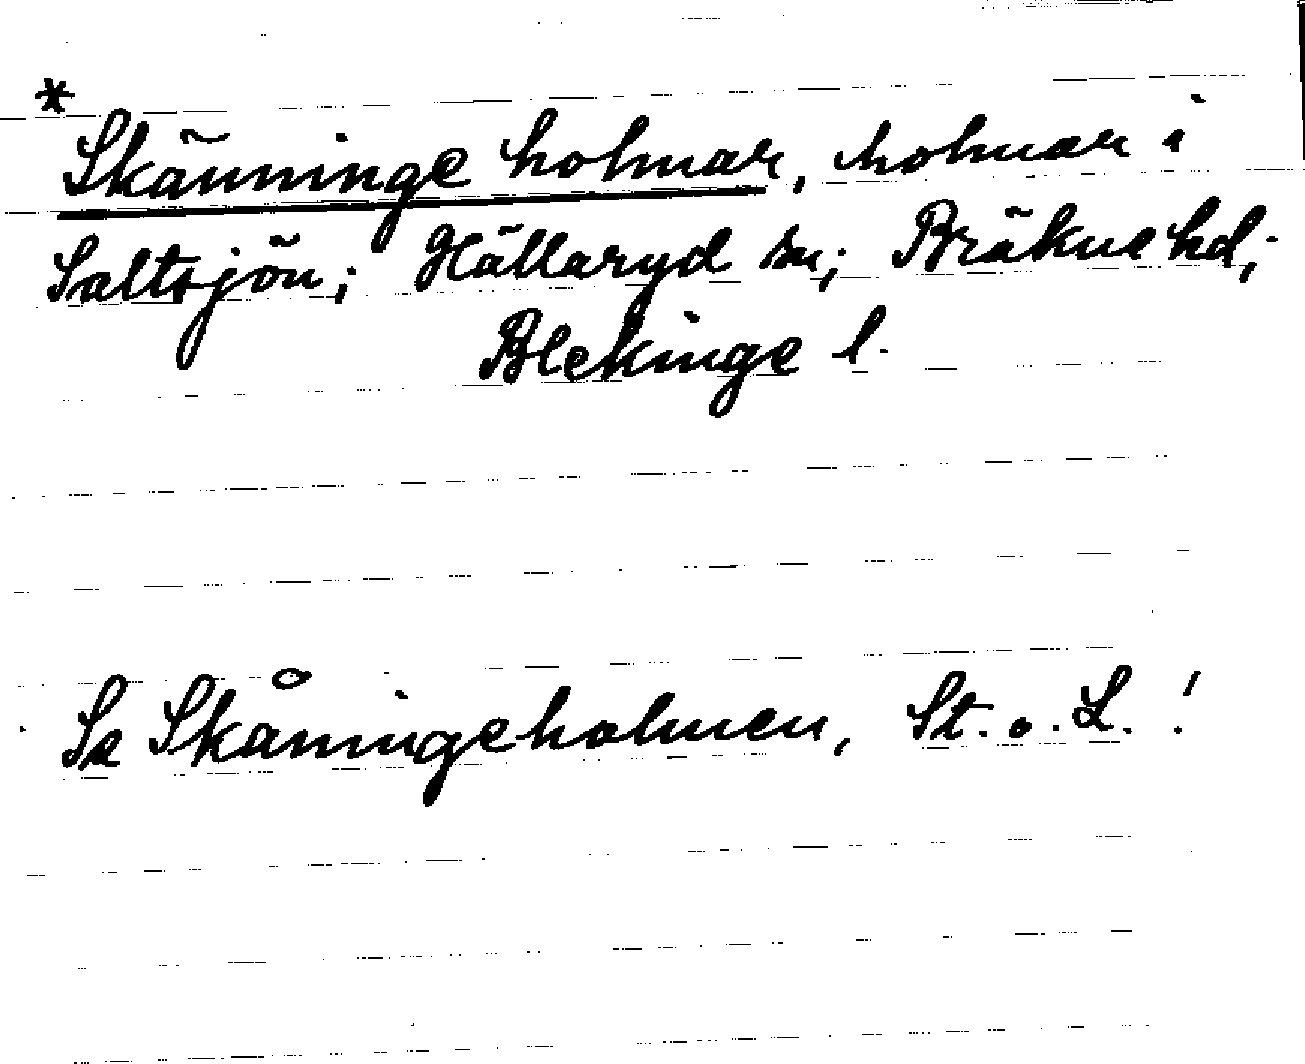 * Skänninge holmar, holmar i
Saltsjön; Hällaryd sn; Bräkne hd;
Blekinge l.
Se Skåningeholmen, St. o. L. !